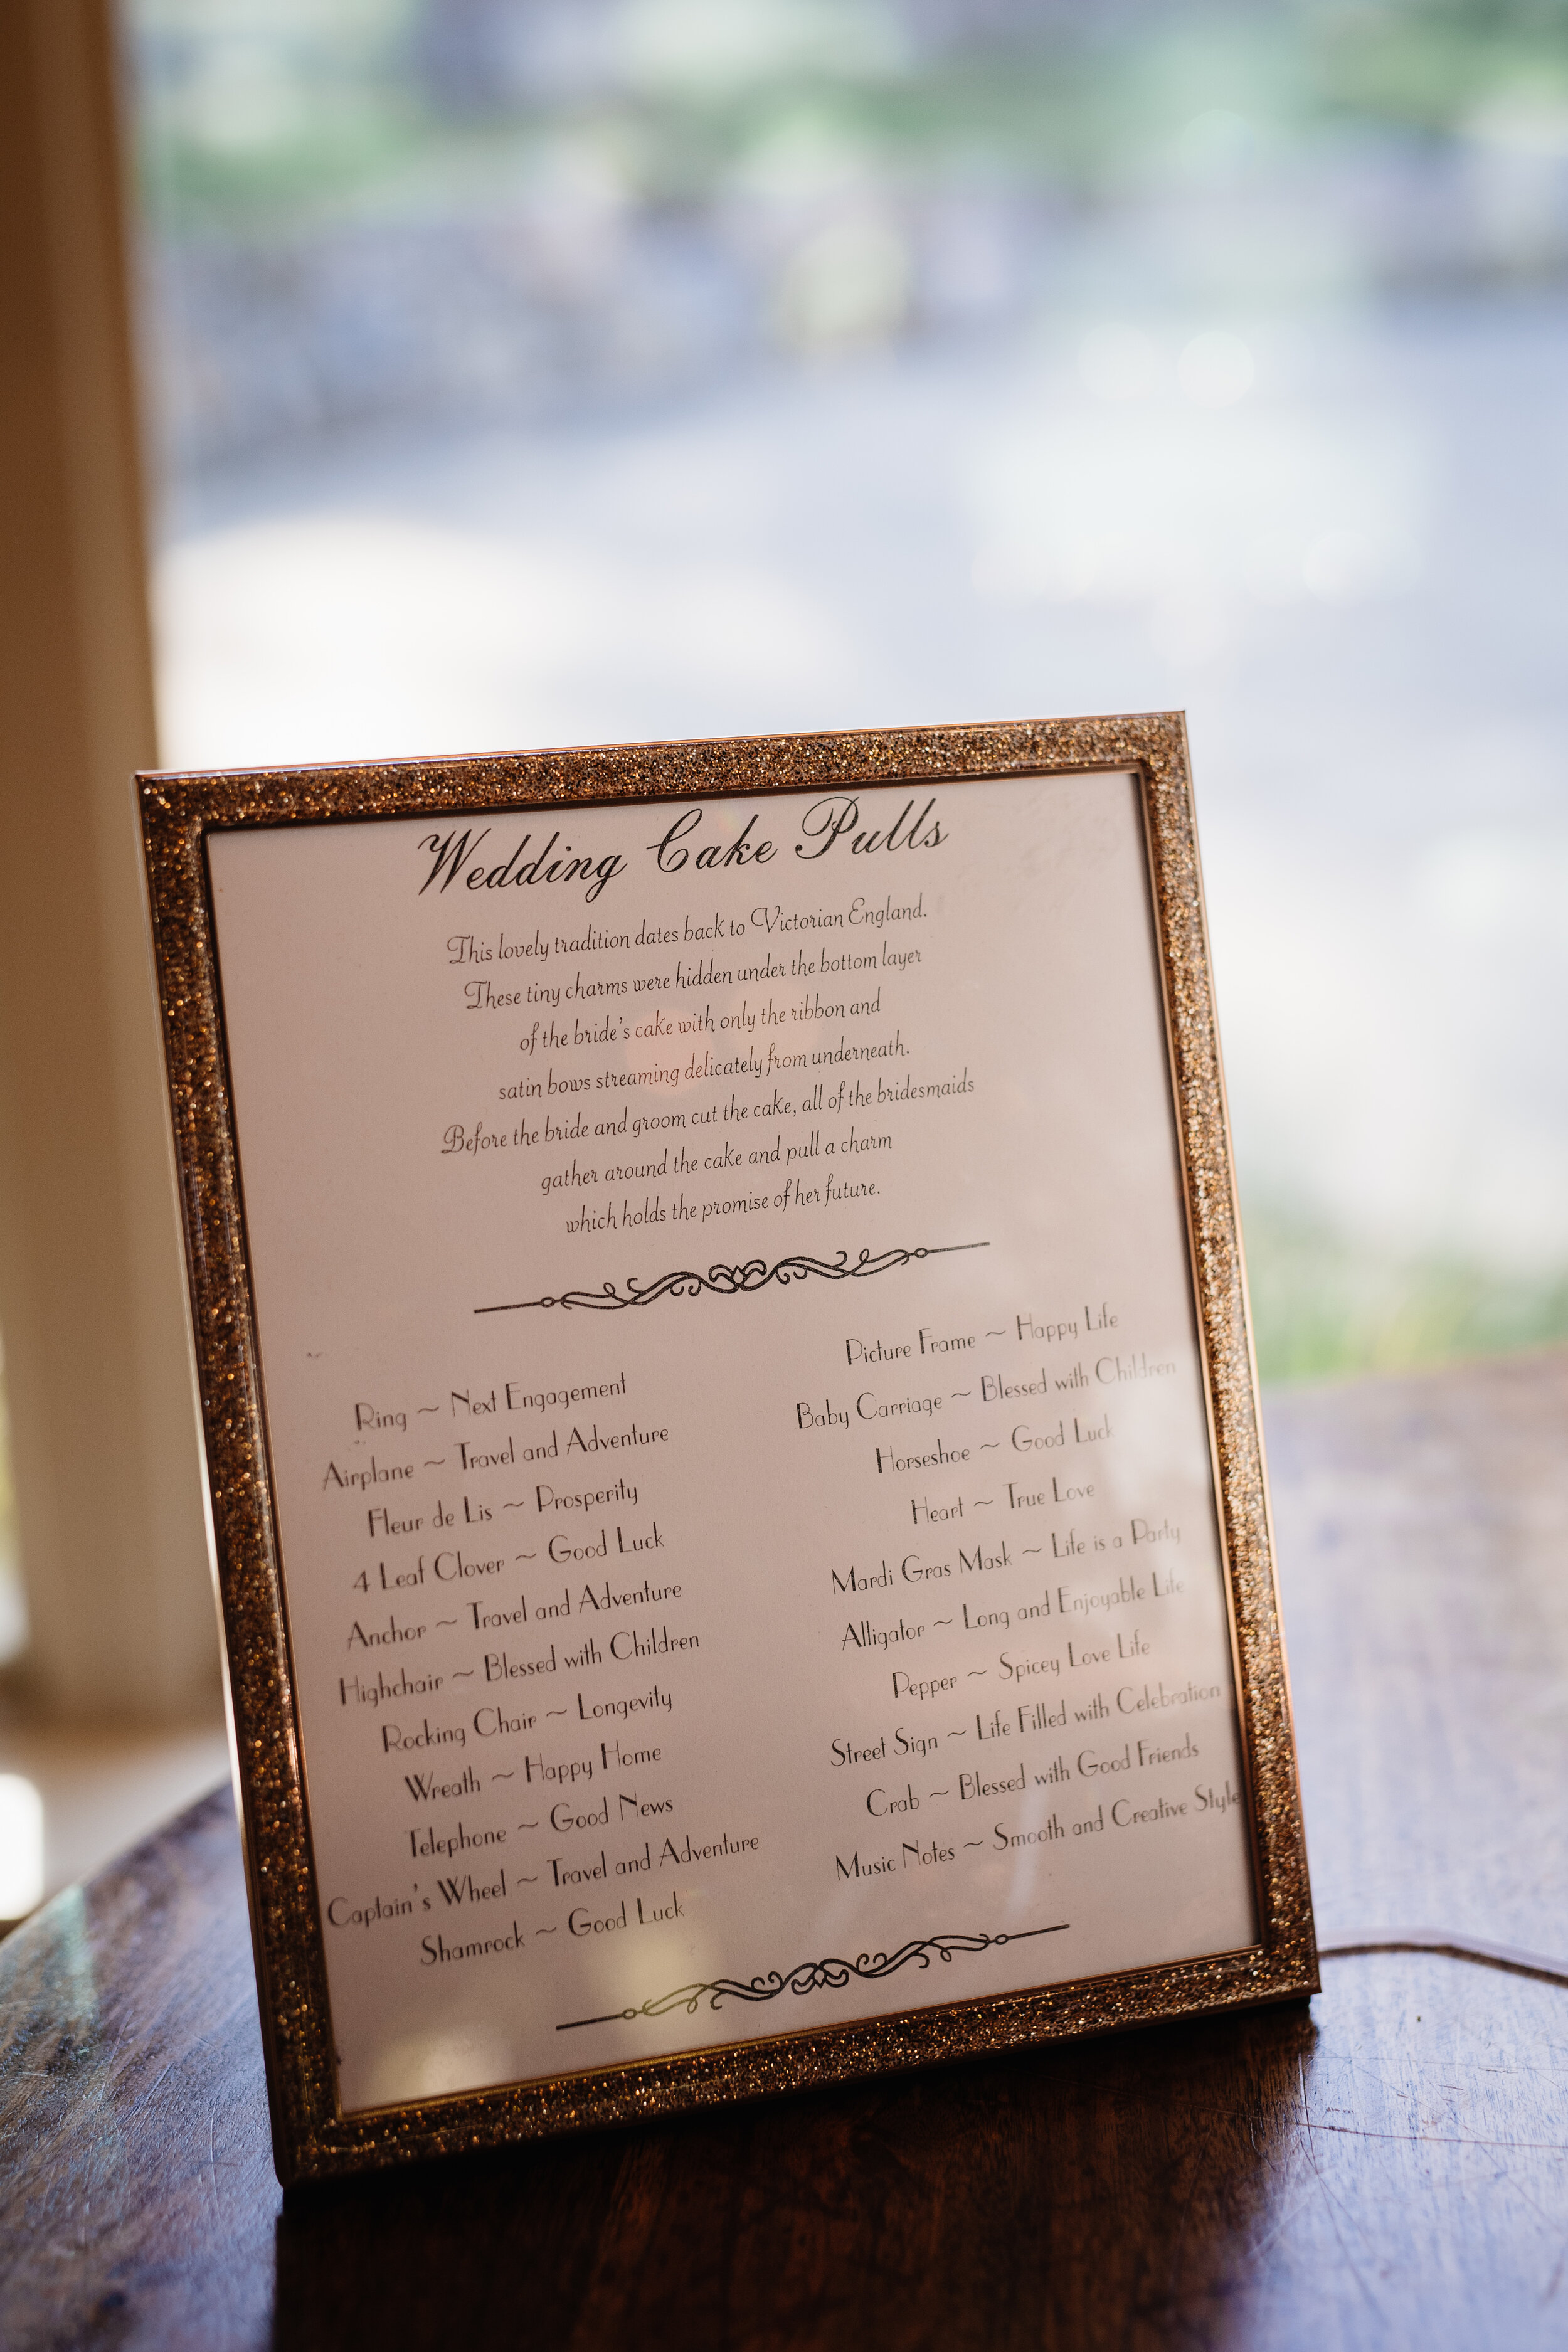 Wedding Cake Pulls
This lovely tradition dates back to Victorian England.
These tiny charms were hidden under the bottom layer
of the bride's cake with only the ribbon and
satin bows streaming delicately from underneath.
Before the bride and groom cut the cake, all of the bridesmaids
gather around the cake and pull a charm
which holds the promise of her future.
Ring ~ Next Engagement
Airplane ~ Travel and Adventure
Fleur de Lis ~ Prosperity
4 Leaf Clover ~ Good Luck
Anchor ~ Travel and Adventure
Highchair ~ Blessed with Children
Rocking Chair ~ Longevity
Wreath ~ Happy Home
Telephone ~ Good News
Captain's Wheel ~ Travel and Adventure
Shamrock ~ Good Luck
Picture Frame ~ Happy Life
Baby Carriage ~ Blessed with Children
Horseshoe ~ Good Luck
Heart ~ True Love
Mardi Gras Mask ~ Life is a Party
Alligator ~ Long and Enjoyable Life
Pepper ~ Spicey Love Life
Street Sign ~ Life Filled with Celebration
Crab ~ Blessed with Good Friends
Music Notes ~ Smooth and Creative Style